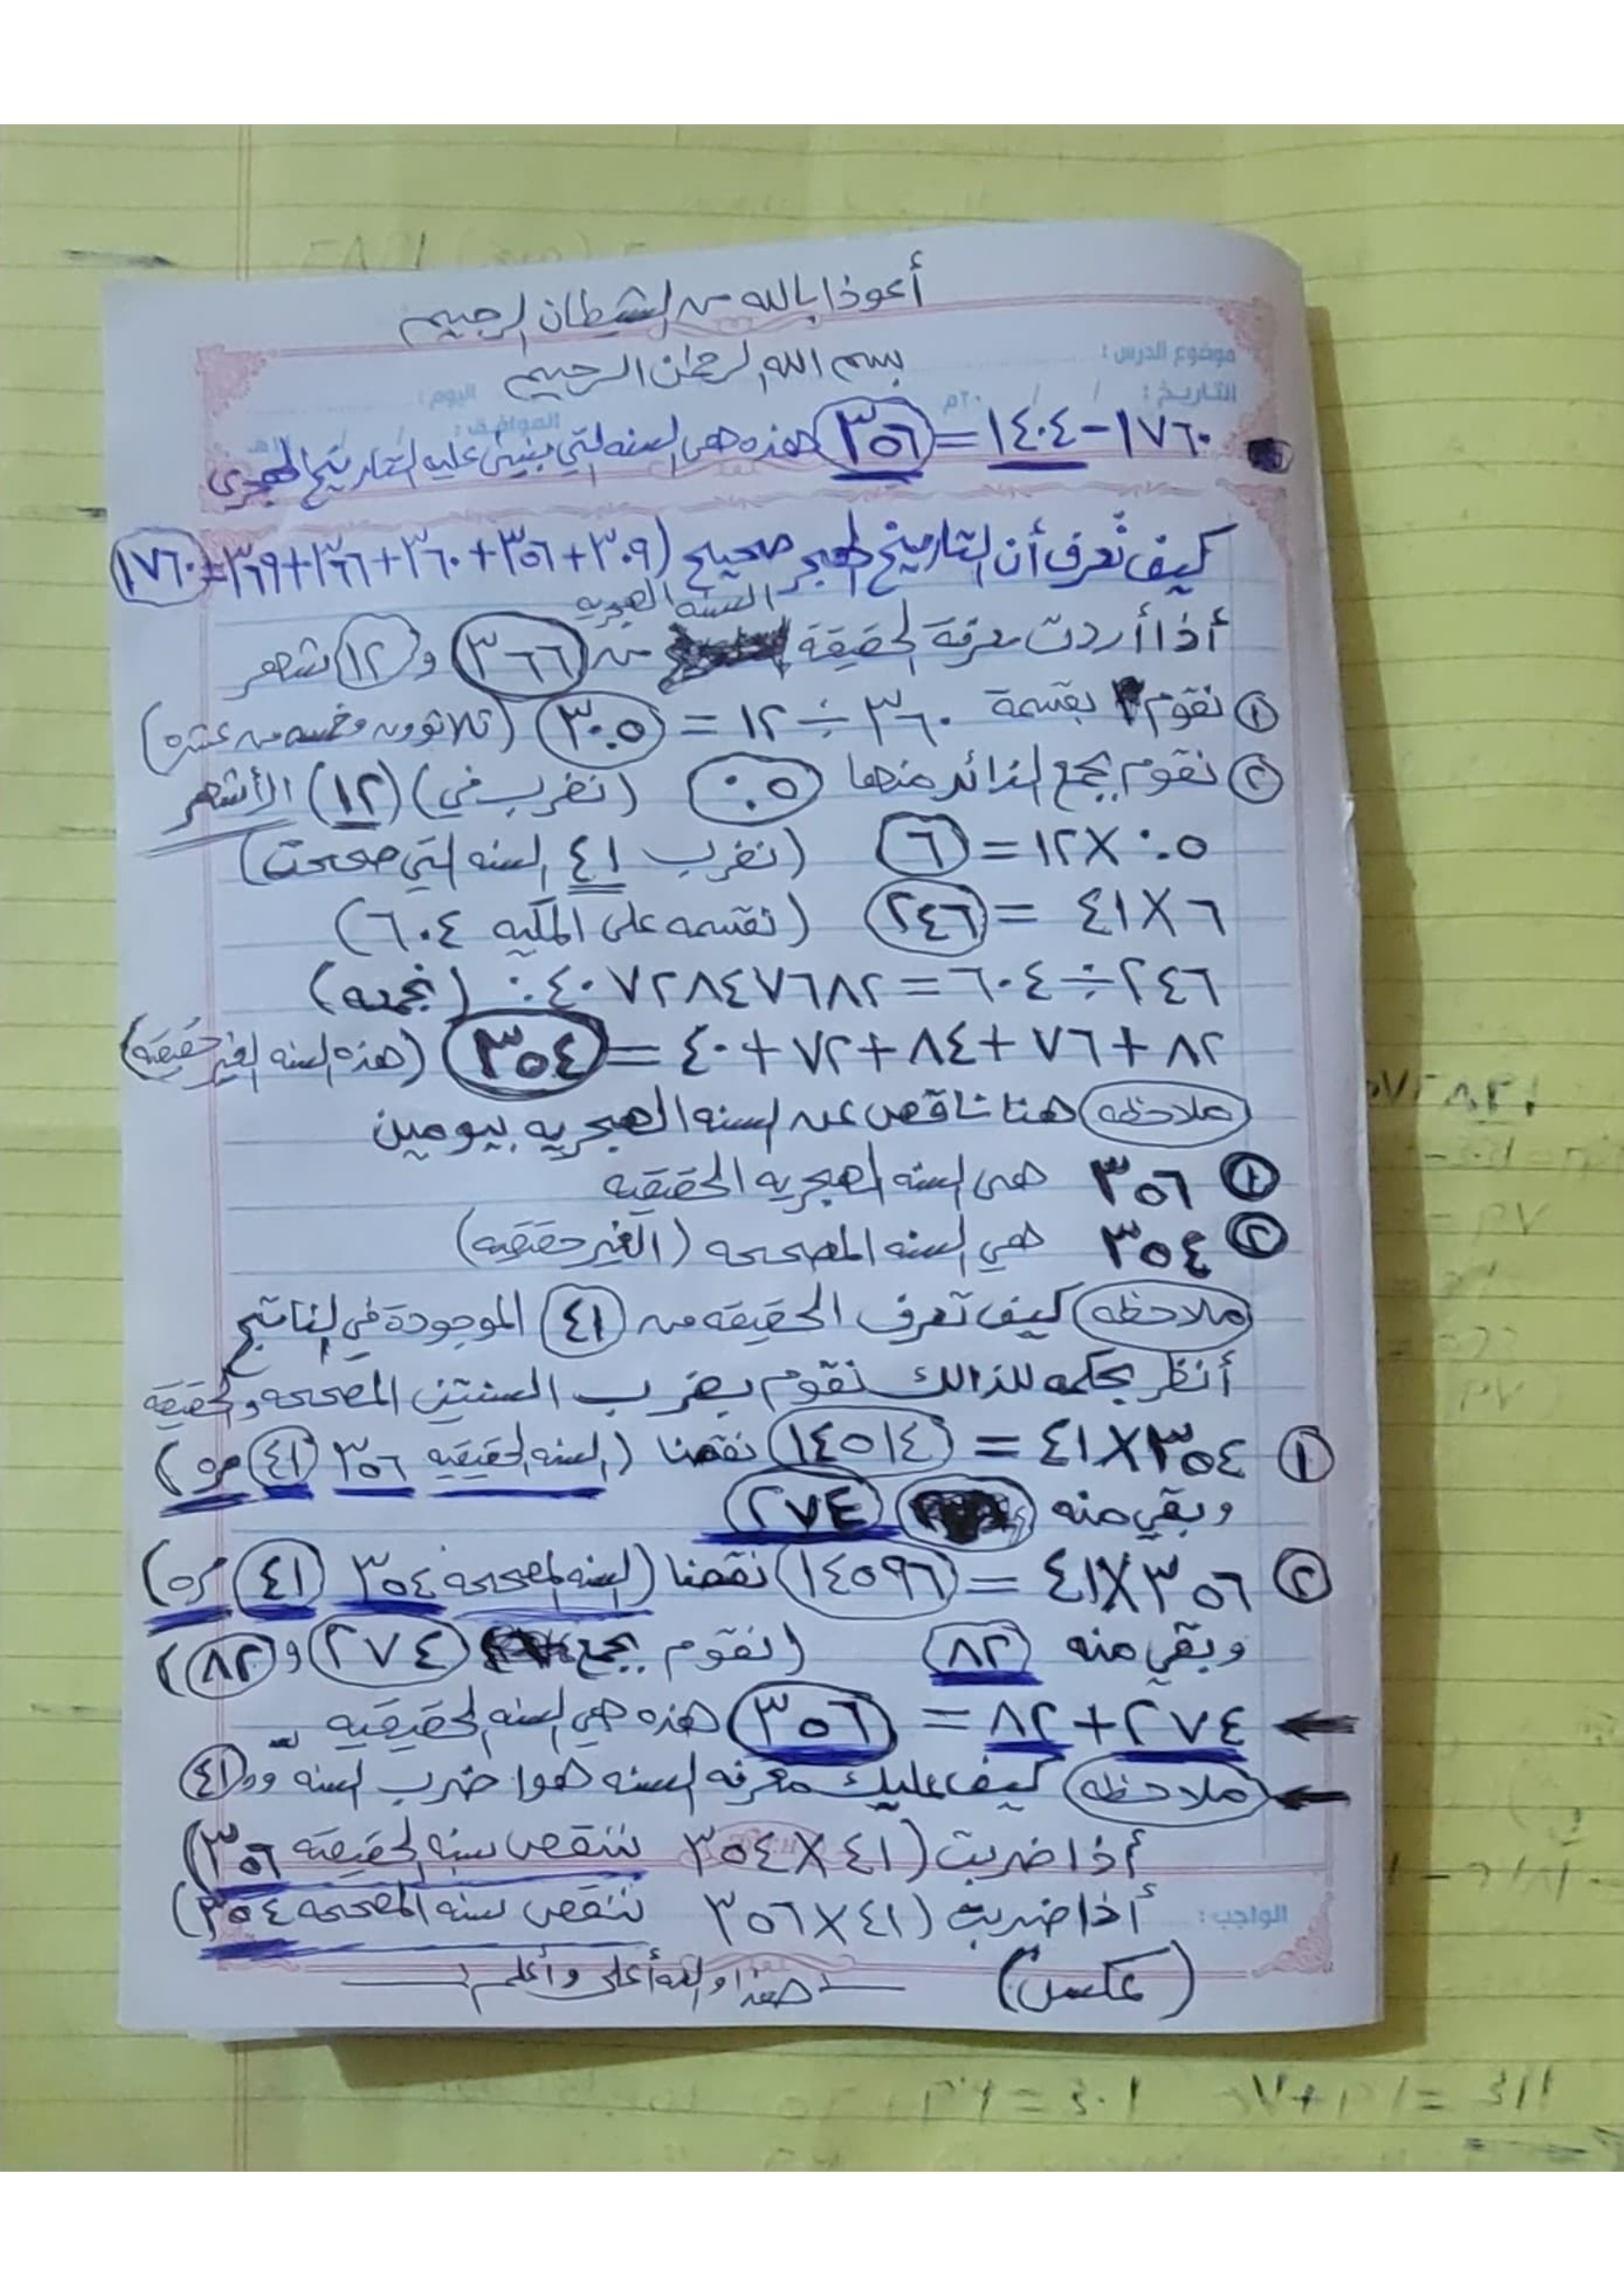 أعوذا بالله من الشيطان الرجيم
بسم الله الرحمن الرحيم
موضوع الدرس :
التاريخ : / / ٢٠م اليوم :
الموافق : / /
١٧٦٠ - ١٤٠٤ = ٣٥٦ هذه هي السنه التي بنيئ عليه التاريخ الهجري
كيف نُعرف أن التاريخ الهجر صحيح (٣٠٩+٣٥٦+٣٦٠+٣٦٦+٣٦٩=١٧٦٠
السنه الهجريه
أذا أردت معرفة الحقيقة من ٣٦٦ و ١٢ شهر
١ نقوم بقسمة ٣٦٠ ÷ ١٢ = ٣٠.٥ (ثلاثوون وخمسه من عشره)
٢ نقوم بجمع الزائد منها ٠.٥ (نضرب في) (١٢) الأشهر
٠.٥ × ١٢ = ٦ (نضرب ٤١ السنه التي صححت)
٦ × ٤١ = ٢٤٦ (نقسمه على المكيه ٦٠٤)
٢٤٦ ÷ ٦٠٤ = ٠.٤٠٧٢٨٤٧٦٨٢ (نجمعه)
٨٢ + ٧٦ + ٨٤ + ٧٢ + ٤٠ = ٣٥٤ (هذه السنه الغير حقيقيه)
ملاحظه هنا ناقص عن السنه الهجريه بيومين
١ ٣٥٦ هي السنه الهجريه الحقيقيه
٢ ٣٥٤ هي السنه المصححه (الغير حقيقيه)
ملاحظه كيف تعرف الحقيقه من ٤١ الموجودة في الناتج
أنظر بحكمه للذالك نقوم بضرب السنتين المصححه والحقيقه
١ ٣٥٤ × ٤١ = ١٤٥١٤ نقصنا (السنه الحقيقيه ٣٥٦ ٤١ مره)
وبقي منه ٢٧٤
٢ ٣٥٦ × ٤١ = ١٤٥٩٦ نقصنا (السنه المصححه ٣٥٤ ٤١ مره)
وبقي منه ٨٢ (نقوم بجمع ٢٧٤ و ٨٢)
٢٧٤ + ٨٢ = ٣٥٦ هذه هي السنه الحقيقيه
ملاحظه كيف عليك معرفه السنه هوا ضرب السنه وو ٤١
أذا ضربت (٤١ × ٣٥٤ تنقص سنه الحقيقه ٣٥٦)
أذا ضربت (٤١ × ٣٥٦ تنقص سنه المصححه ٣٥٤)
الواجب :
(عكس) هذا والله أعلى وأعلم